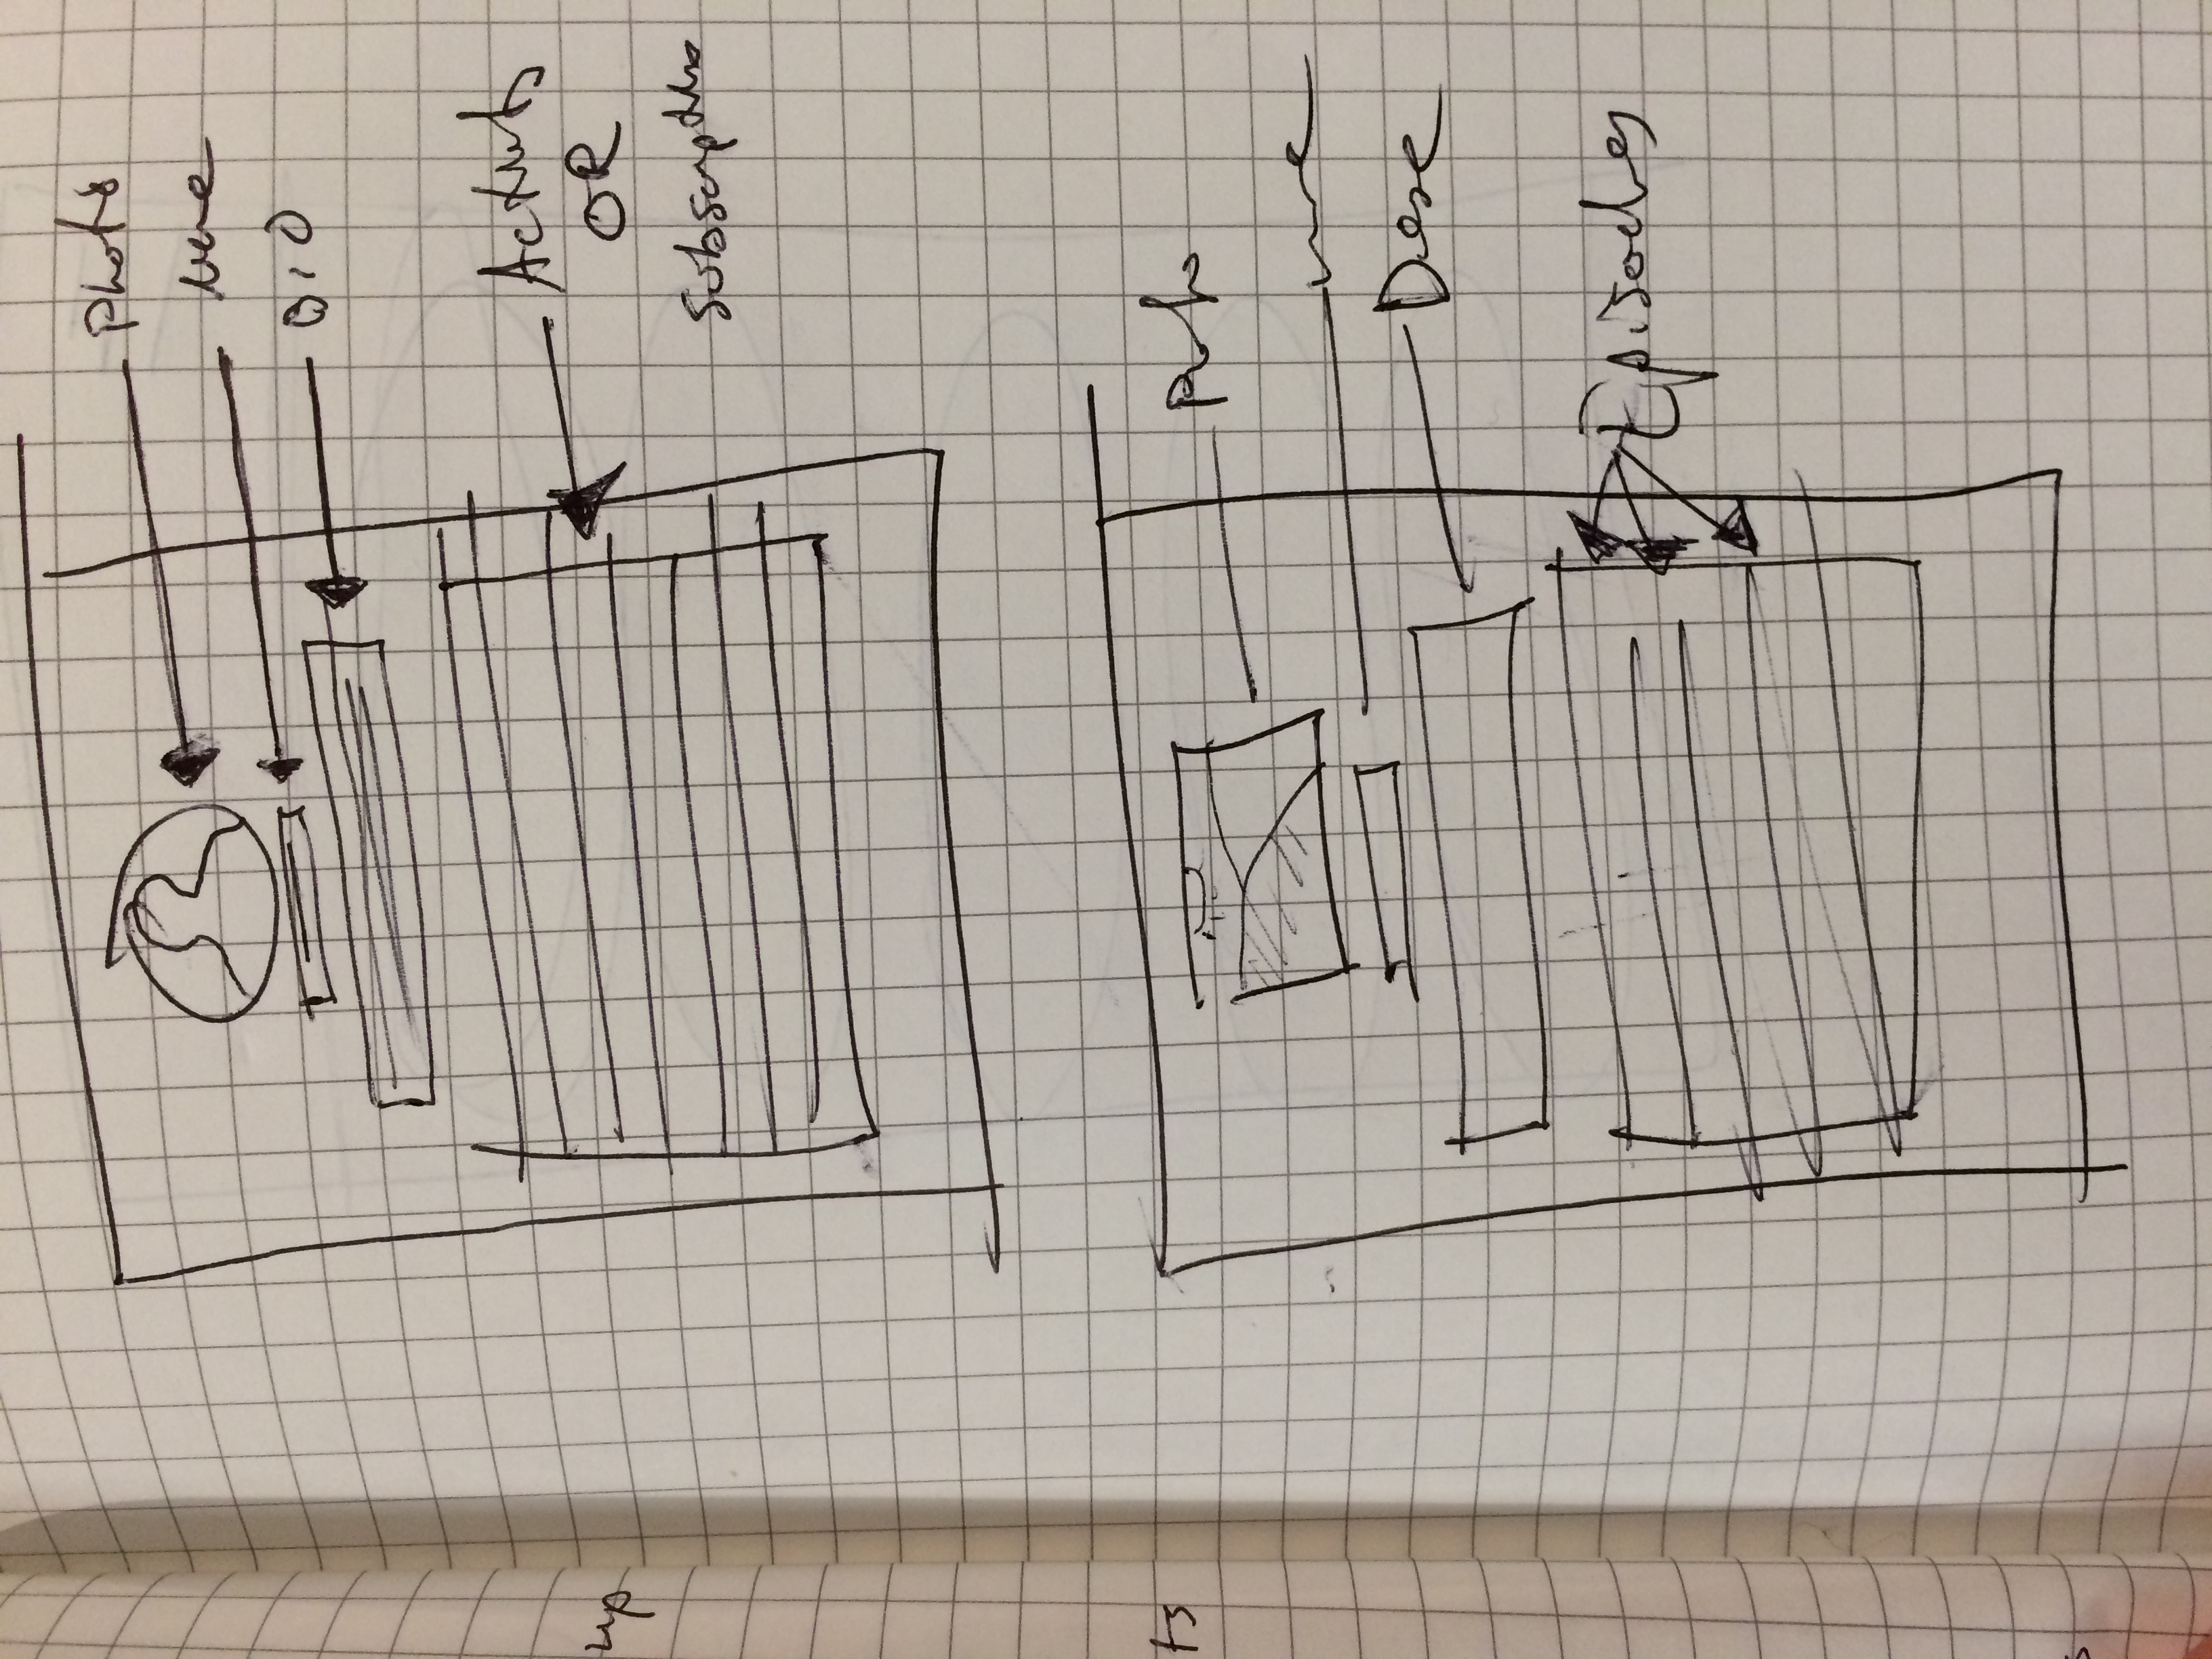 up
ts
Photo
Name
BIO
Activity
OR
Subscriptions
Photo
name
Desc
Episodes